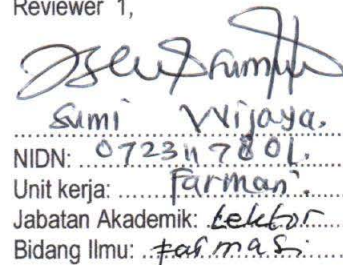 Reviewer 1,
Sumi Wijaya.
NIDN: 0723117801.
Unit kerja: Farmasi.
Jabatan Akademik: Lektor
Bidang Ilmu: Farmasi